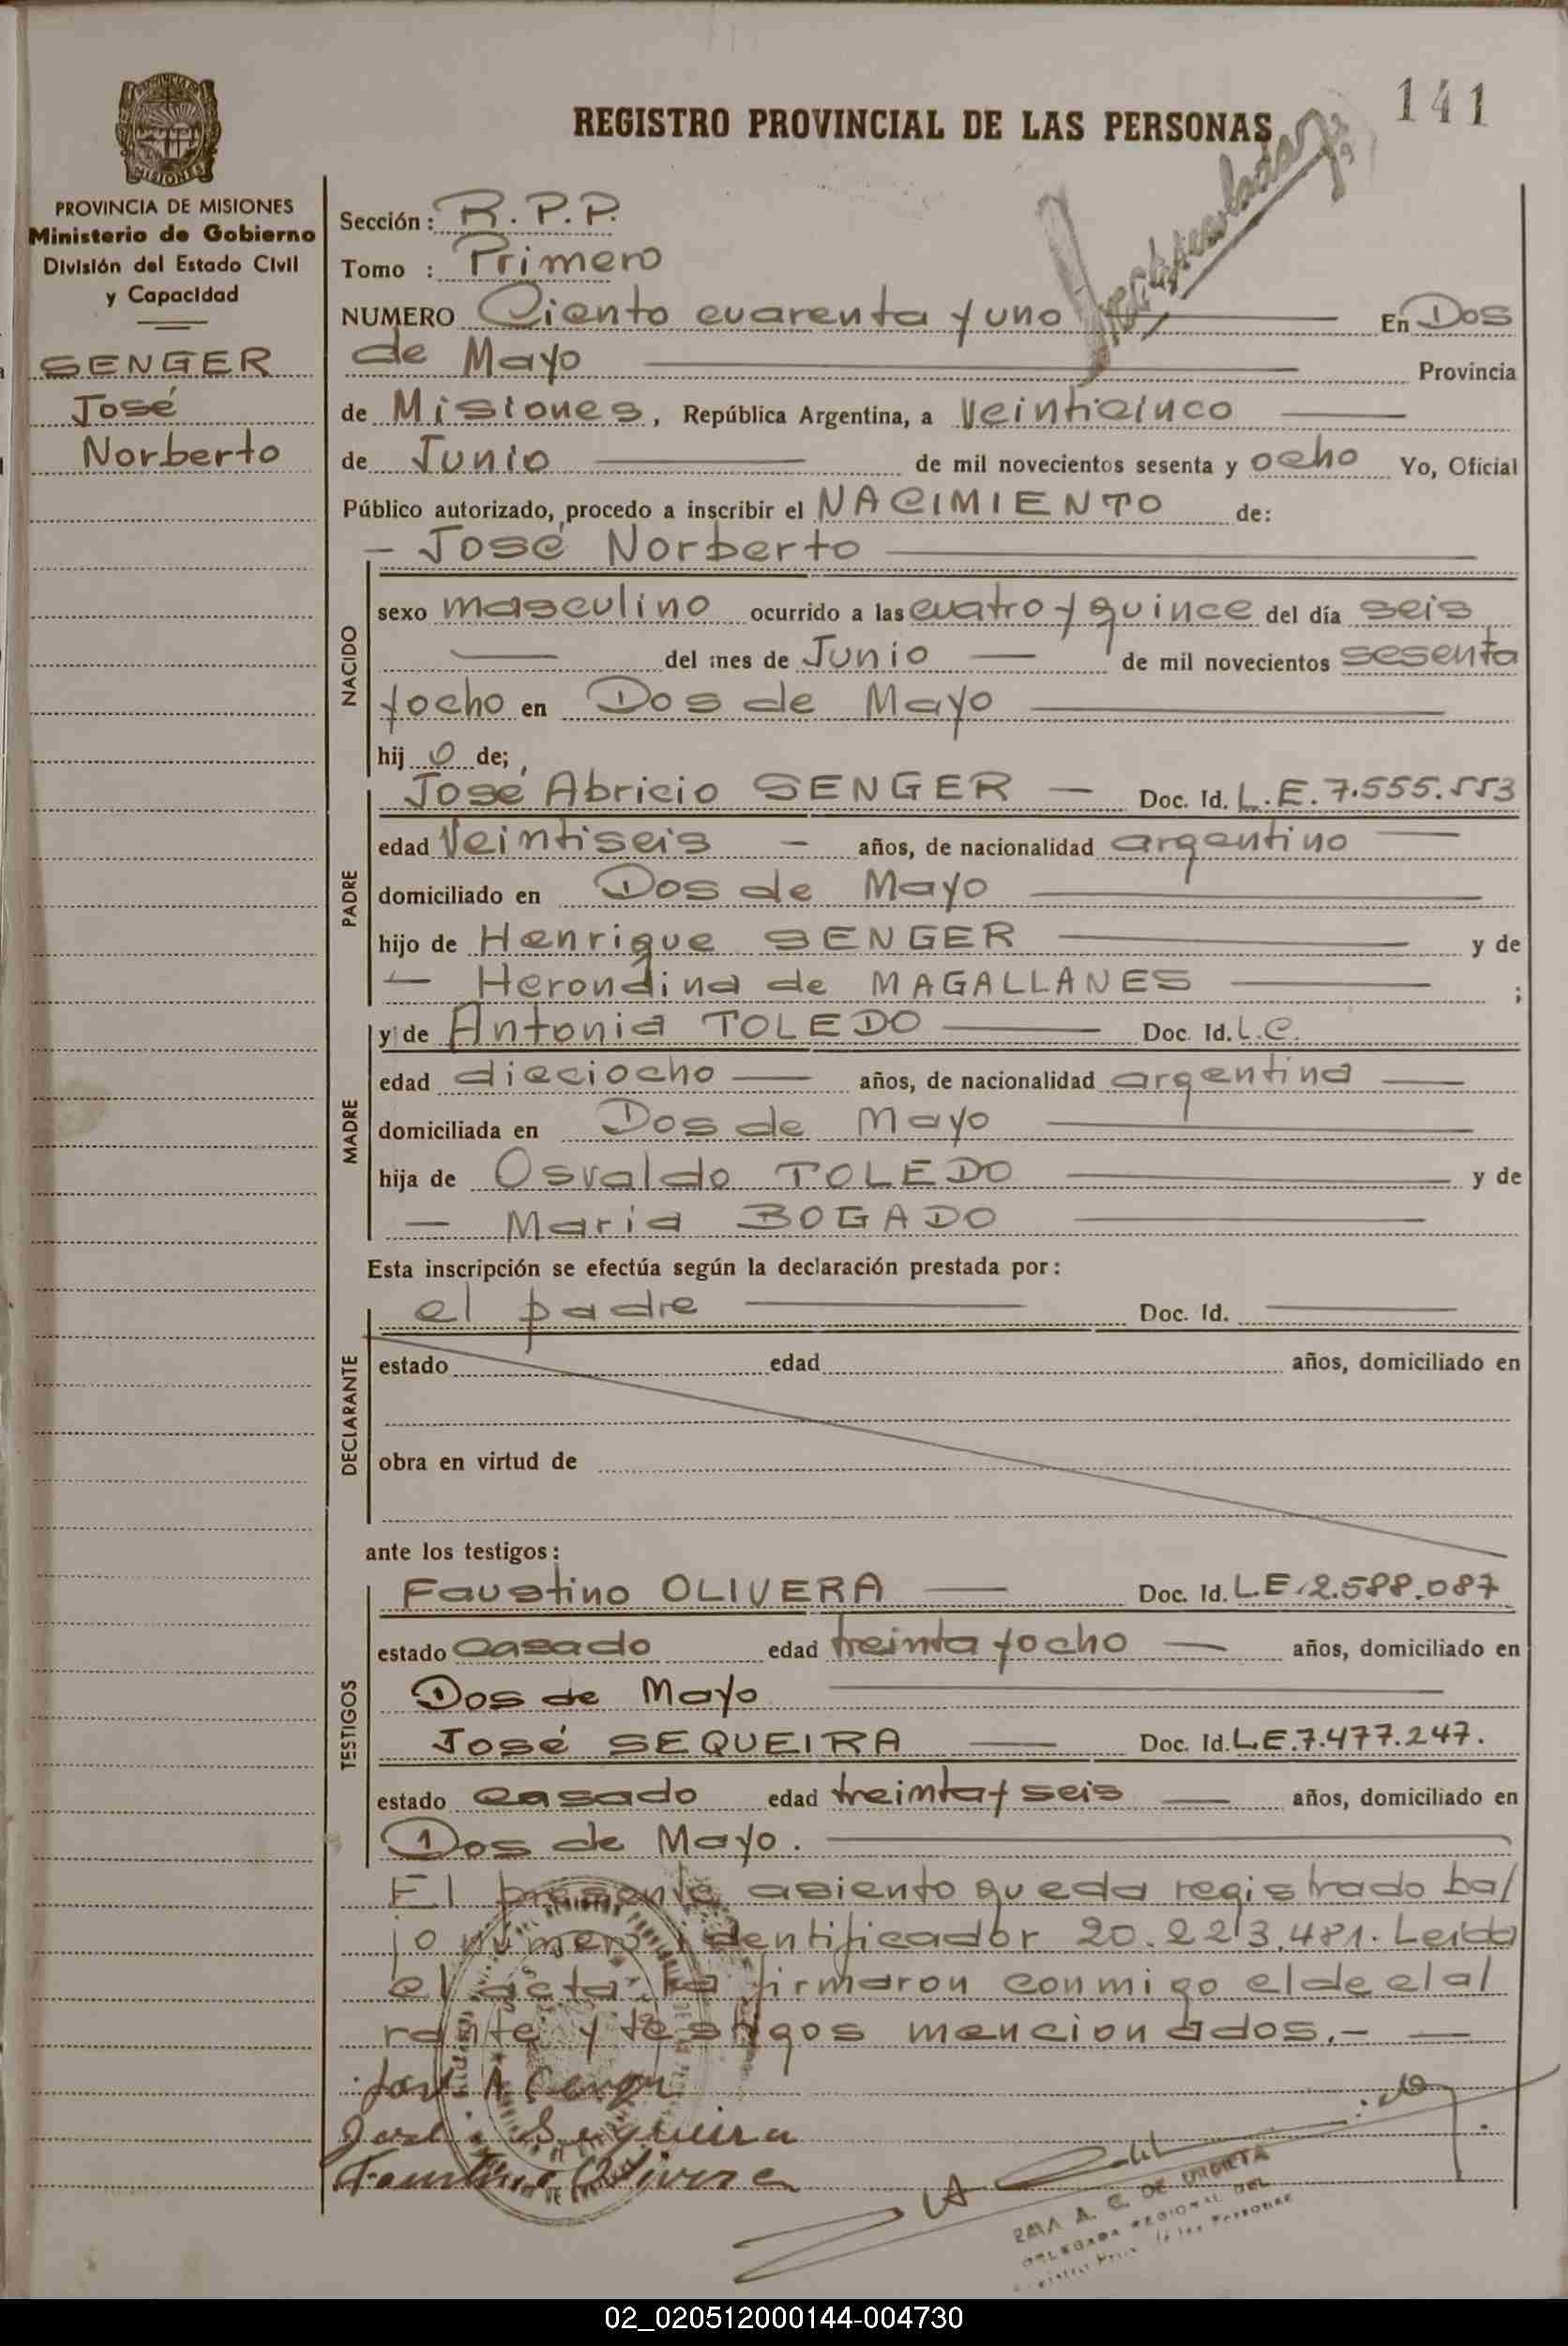 141
REGISTRO PROVINCIAL DE LAS PERSONAS
PROVINCIA DE MISIONES
Ministerio de Gobierno
División del Estado Civil
y Capacidad
SENGER
José
Norberto
Sección: R.P.P.
Tomo : Primero
NUMERO Ciento cuarenta y uno En Dos
de Mayo Provincia
de Misiones, República Argentina, a Veinticinco
de Junio de mil novecientos sesenta y ocho Yo, Oficial
Público autorizado, procedo a inscribir el NACIMIENTO de:
- José Norberto
NACIDO
sexo masculino ocurrido a las cuatro y quince del día seis
del mes de Junio de mil novecientos sesenta
y ocho en Dos de Mayo
hij o de;
PADRE
José Abricio SENGER - Doc. Id. L.E. 7.555.553
edad Veintiseis - años, de nacionalidad argentino
domiciliado en Dos de Mayo
hijo de Henrique SENGER y de
- Herondina de MAGALLANES ;
MADRE
y de Antonia TOLEDO Doc. Id. L.C.
edad dieciocho años, de nacionalidad argentina
domiciliada en Dos de Mayo
hija de Osvaldo TOLEDO y de
- Maria BOGADO
Esta inscripción se efectúa según la declaración prestada por:
DECLARANTE
el padre Doc. Id.
estado edad años, domiciliado en
obra en virtud de
ante los testigos:
TESTIGOS
Faustino OLIVERA Doc. Id. L.E. 2.588.087
estado casado edad treinta y ocho años, domiciliado en
Dos de Mayo
José SEQUEIRA Doc. Id. L.E. 7.477.247.
estado casado edad treinta y seis años, domiciliado en
Dos de Mayo.
El presente asiento queda registrado ba/
jo número identificador 20.223.481. Leida
el acta, la firmaron conmigo el declal
rante y testigos mencionados.-
José A Cenger
José Sequeira
Faustino Olivera
A. C. DE URDIETA
DELEGADA REGIONAL DEL
de las Personas
02_020512000144-004730